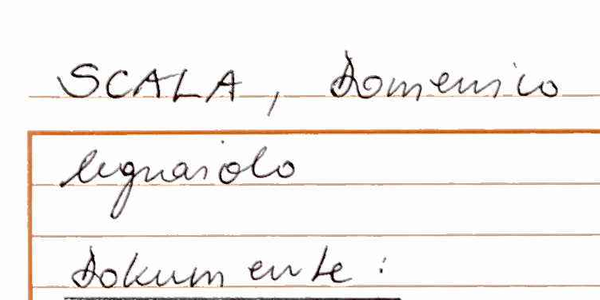 SCALA, Domenico
legnaiolo
Dokumente: